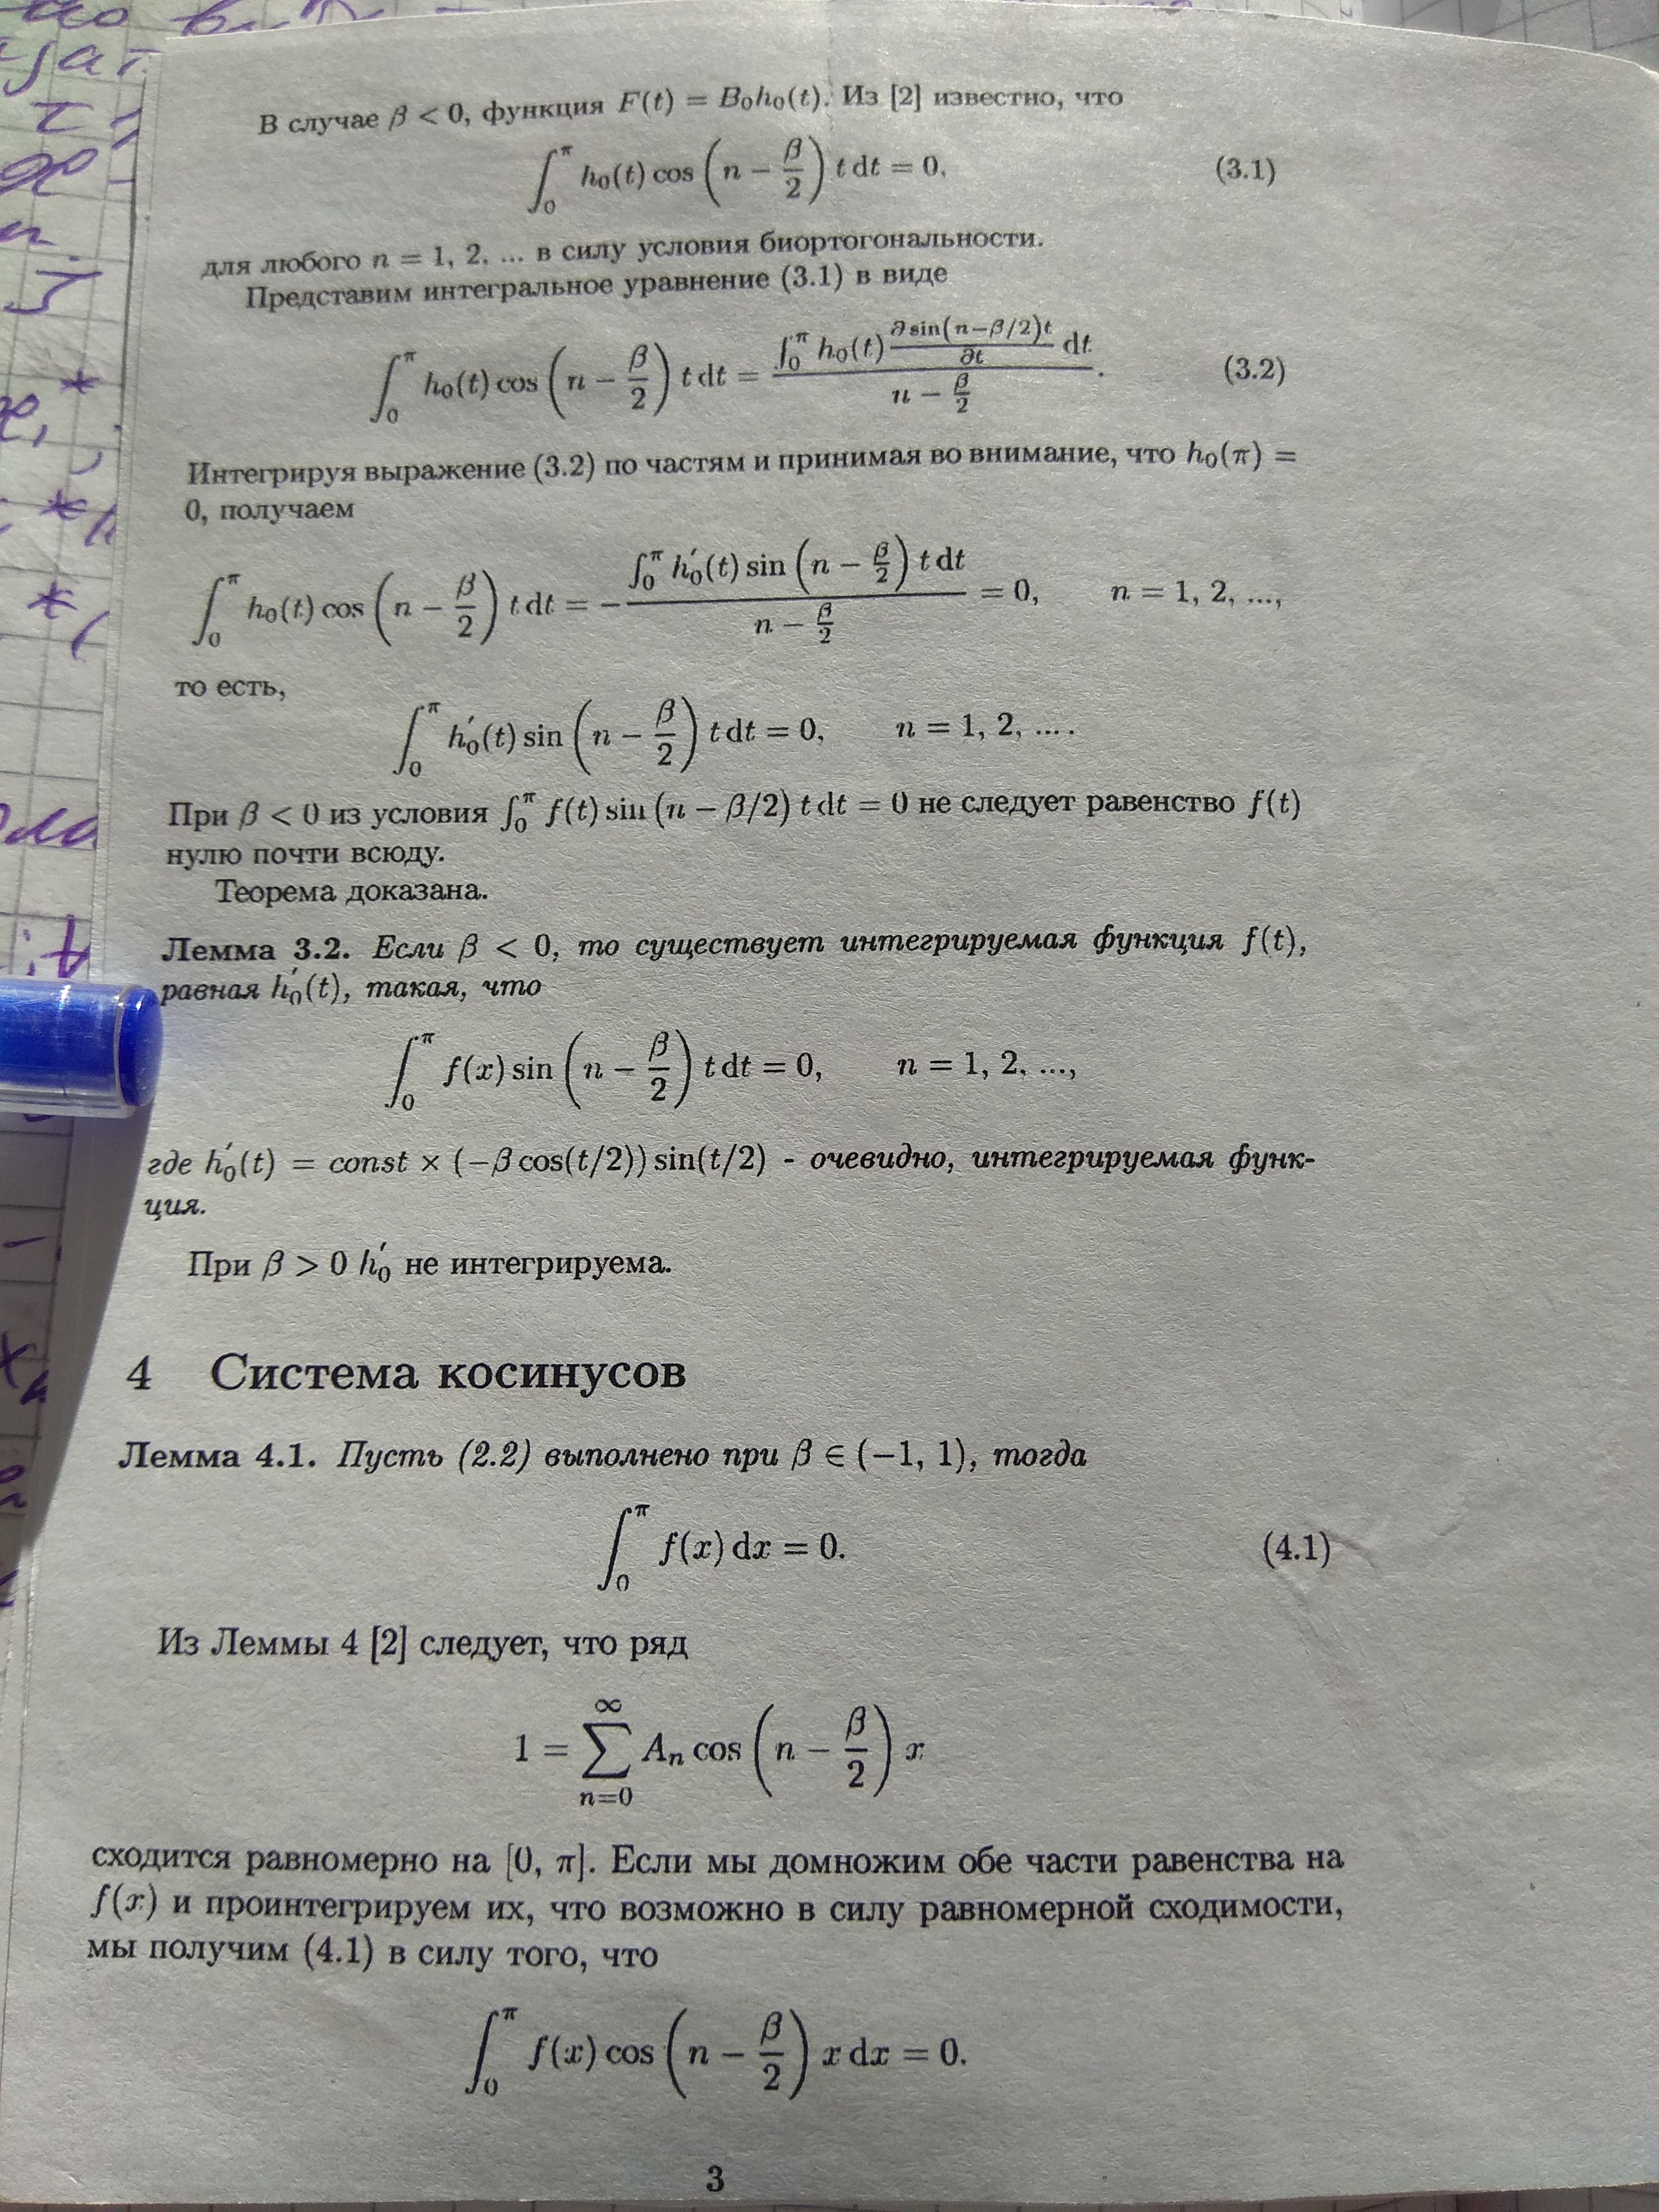 В случае β < 0, функция F(t) = B₀h₀(t). Из [2] известно, что
∫₀^π h₀(t) cos (n − β/2) t dt = 0, (3.1)
для любого n = 1, 2, ... в силу условия биортогональности.
Представим интегральное уравнение (3.1) в виде
∫₀^π h₀(t) cos (n − β/2) t dt = (∫₀^π h₀(t) (∂ sin(n−β/2)t / ∂t) dt) / (n − β/2). (3.2)
Интегрируя выражение (3.2) по частям и принимая во внимание, что h₀(π) =
0, получаем
∫₀^π h₀(t) cos (n − β/2) t dt = − (∫₀^π h₀′(t) sin (n − β/2) t dt) / (n − β/2) = 0, n = 1, 2, ...,
то есть,
∫₀^π h₀′(t) sin (n − β/2) t dt = 0, n = 1, 2, ... .
При β < 0 из условия ∫₀^π f(t) sin (n − β/2) t dt = 0 не следует равенство f(t)
нулю почти всюду.
Теорема доказана.
Лемма 3.2. Если β < 0, то существует интегрируемая функция f(t),
равная h₀′(t), такая, что
∫₀^π f(x) sin (n − β/2) t dt = 0, n = 1, 2, ...,
где h₀′(t) = const × (−β cos(t/2)) sin(t/2) - очевидно, интегрируемая функ-
ция.
При β > 0 h₀′ не интегрируема.
4 Система косинусов
Лемма 4.1. Пусть (2.2) выполнено при β ∈ (−1, 1), тогда
∫₀^π f(x) dx = 0. (4.1)
Из Леммы 4 [2] следует, что ряд
1 = ∑_{n=0}^{∞} Aₙ cos (n − β/2) x
сходится равномерно на [0, π]. Если мы домножим обе части равенства на
f(x) и проинтегрируем их, что возможно в силу равномерной сходимости,
мы получим (4.1) в силу того, что
∫₀^π f(x) cos (n − β/2) x dx = 0.
3